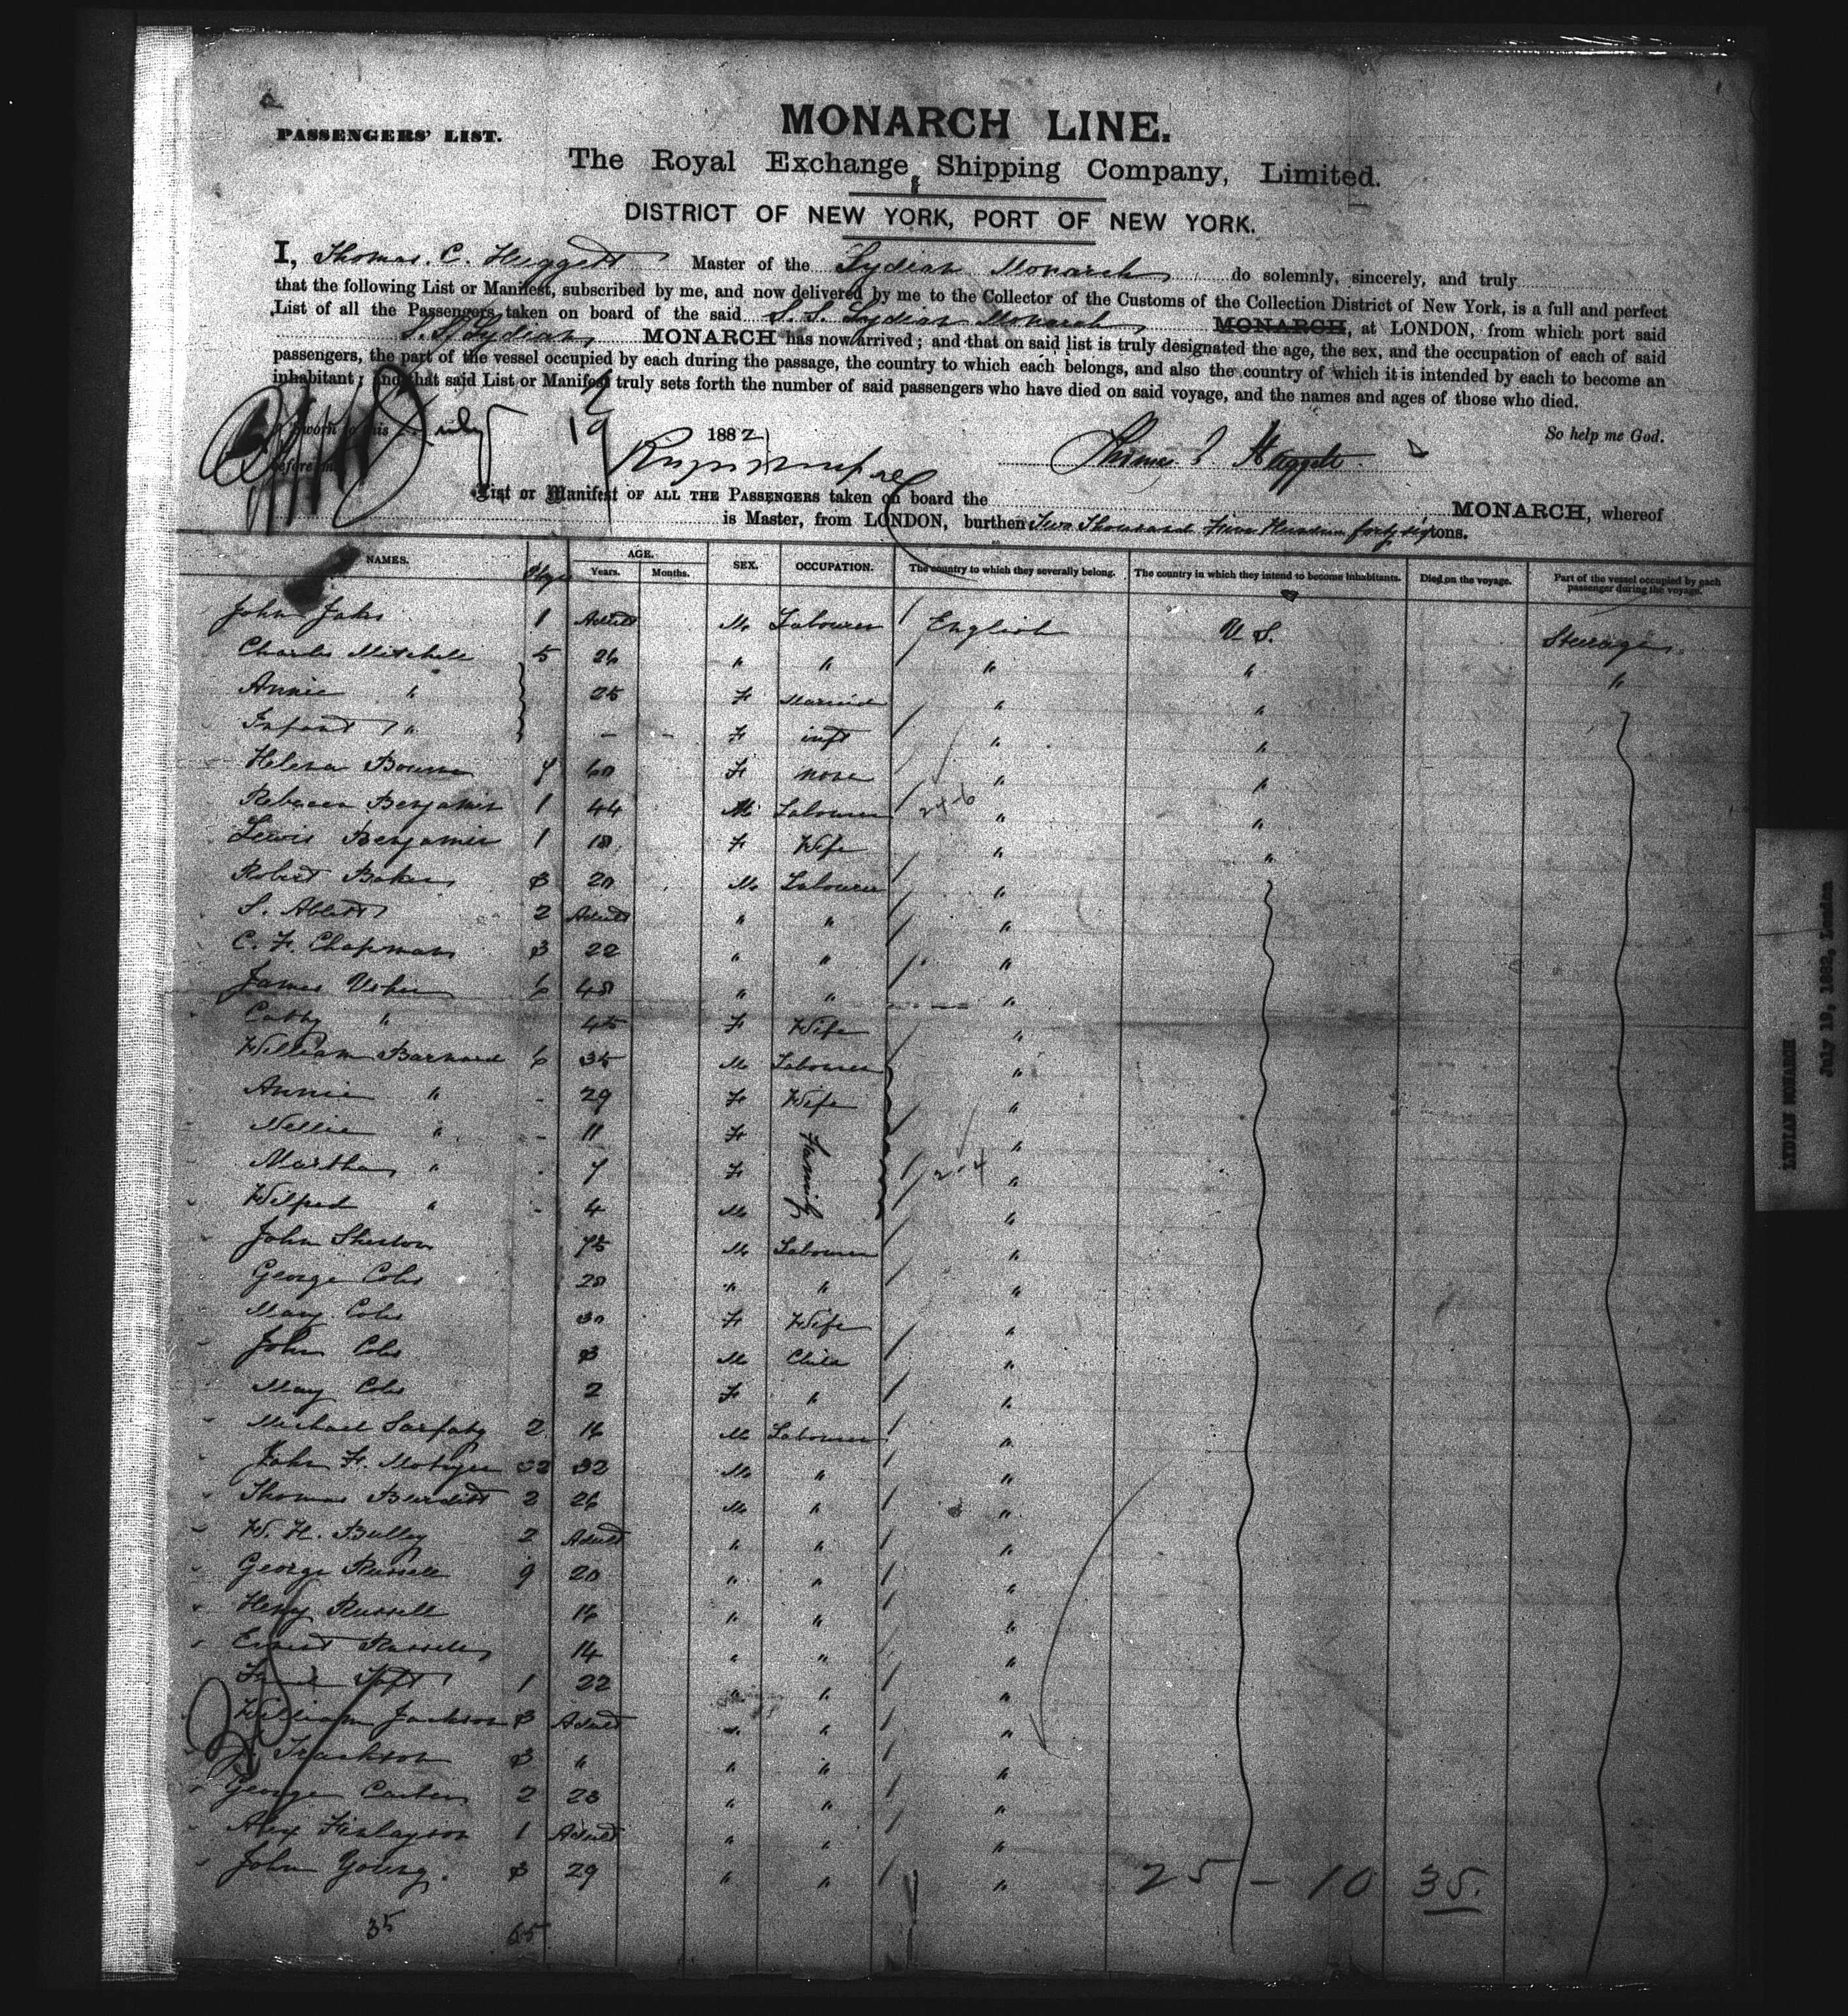 PASSENGERS' LIST.
MONARCH LINE.
The Royal Exchange Shipping Company, Limited.
DISTRICT OF NEW YORK, PORT OF NEW YORK.
I, Thomas. C. Huggett Master of the Lydian Monarch do solemnly, sincerely, and truly
that the following List or Manifest, subscribed by me, and now delivered by me to the Collector of the Customs of the Collection District of New York, is a full and perfect
List of all the Passengers taken on board of the said S. S. Lydian Monarch MONARCH, at LONDON, from which port said
S. S. Lydian MONARCH has now arrived; and that on said list is truly designated the age, the sex, and the occupation of each of said
passengers, the part of the vessel occupied by each during the passage, the country to which each belongs, and also the country of which it is intended by each to become an
inhabitant; and that said List or Manifest truly sets forth the number of said passengers who have died on said voyage, and the names and ages of those who died.
Sworn to this July 19 1882 So help me God.
before me Thomas C. Huggett
List or Manifest OF ALL THE PASSENGERS taken on board the MONARCH, whereof
is Master, from LONDON, burthen Two Thousand Five Hundred forty six tons.
NAMES. AGE. SEX. OCCUPATION. The country to which they severally belong. The country in which they intend to become inhabitants. Died on the voyage. Part of the vessel occupied by each passenger during the voyage.
Years. Months.
John 1 Adult M Labourer English U S. Steerage
Charles Mitchell 5 26 " " " " "
Annie " 25 F Married " "
Infant " - - F inft " "
Helena 60 F none " "
Rebecca Benjamin 1 44 M Labourer 24-6 " "
Lewis Benjamin 1 18 F Wife " "
Robert Baker 3 20 M Labourer "
S. 2 Adult " " "
C. F. Chapman 3 22 " " "
James Usher 6 48 " " "
Cathy " 45 F Wife "
William Barnard 6 35 M Labourer "
Annie " - 29 F Wife "
Nellie " - 11 F Family "
Martha " - 7 F 2-4 "
Wilfred " - 4 M "
John 75 M Labourer "
George Coles 28 " " "
Mary Coles 30 F Wife "
John Coles 3 M Child "
May Coles 2 F " "
Michael Sarfaty 2 16 M Labourer "
John F. 32 32 M " "
Thomas Burditt 2 26 M " "
W. H. Bulley 2 Adult " " "
George Russell 9 20 " " "
Henry Russell 16 " " "
Ernest Russell 14 " " "
1 22 " " "
William Jackson 3 Adult " " "
3 " " " "
George Carter 2 28 " " "
Alex Finlayson 1 Adult " " "
John Young. 3 29 " " "
25 - 10 35.
35 65
LYDIAN MONARCH
July 19, 1882, London